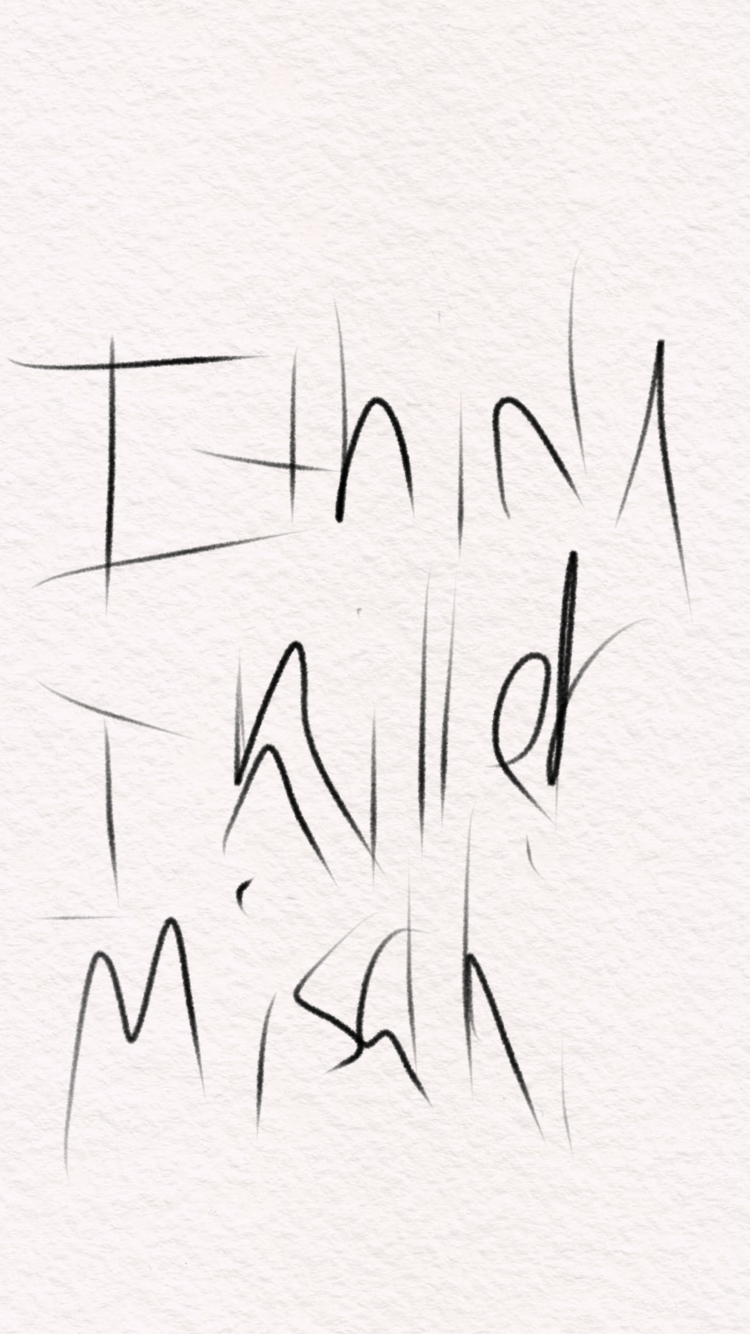 I think
I killed
Misah